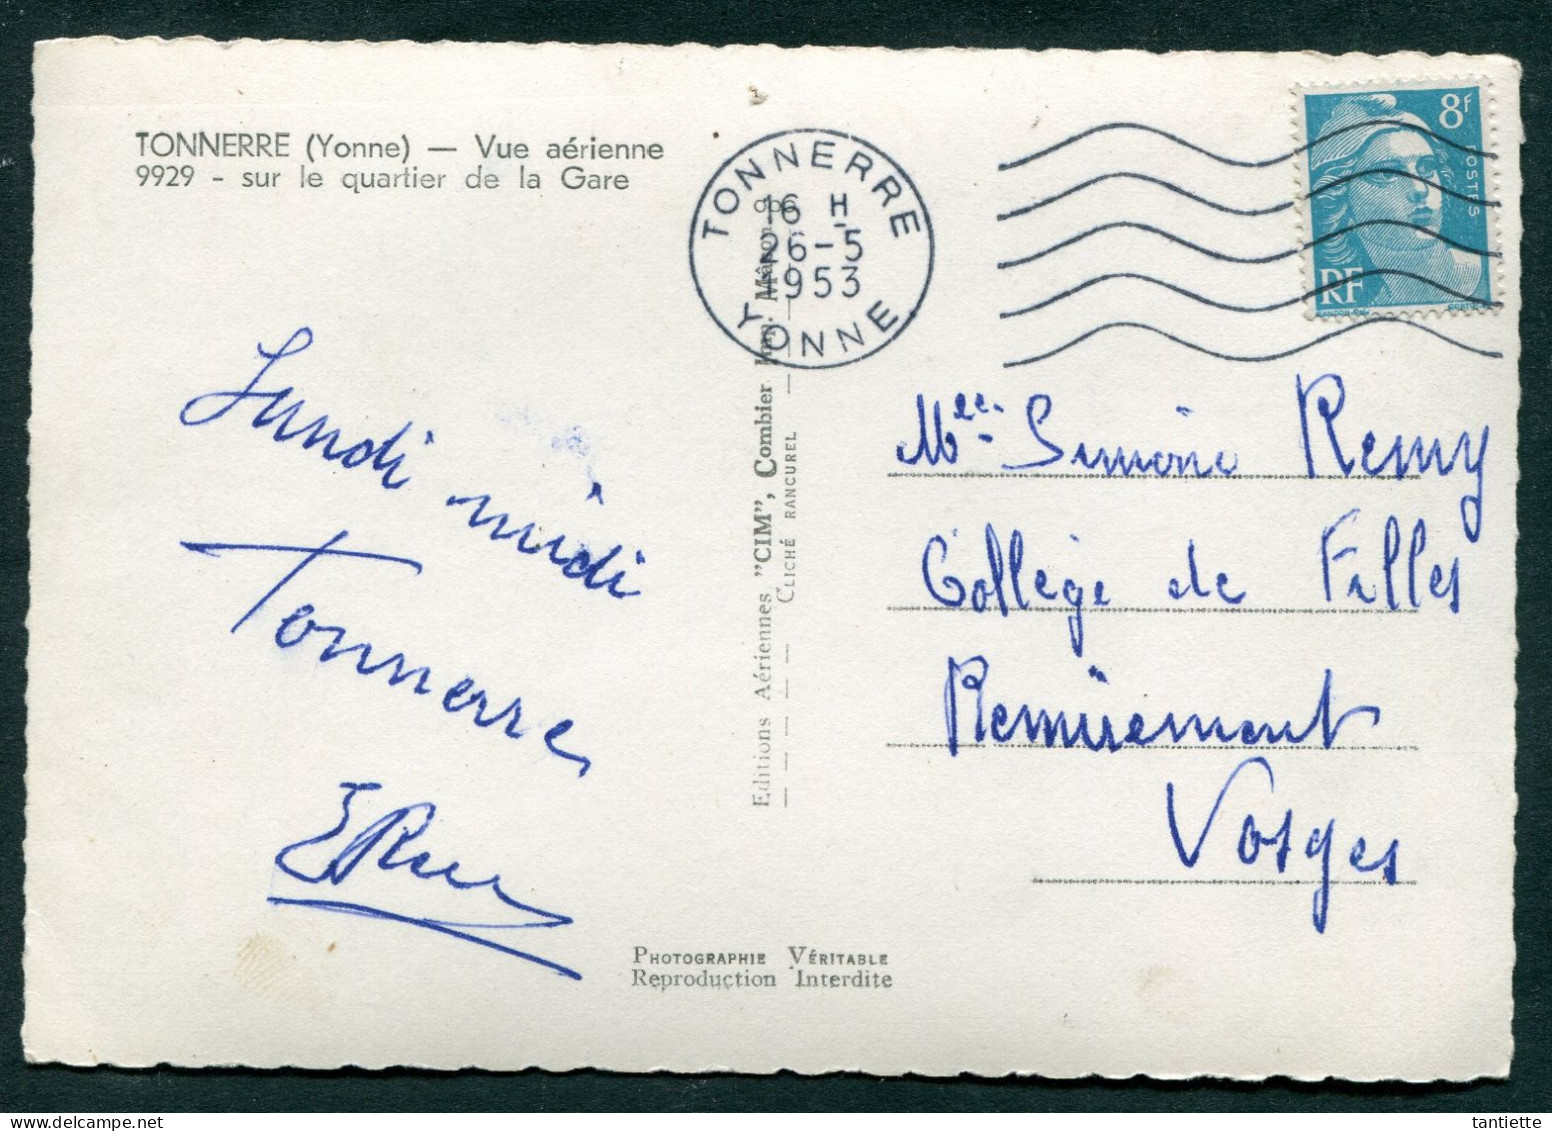 TONNERRE (Yonne) — Vue aérienne
9929 - sur le quartier de la Gare
TONNERRE
16 H
26-5
1953
YONNE
8F
POSTES
RF
Lundi midi
Tonnerre
Editions Aériennes "CIM", Combier Imp. Mâcon
CLICHÉ RANCUREL
Mlle Simone Remy
Collège de Filles
Remiremont
Vosges
PHOTOGRAPHIE VÉRITABLE
Reproduction Interdite
tantiette